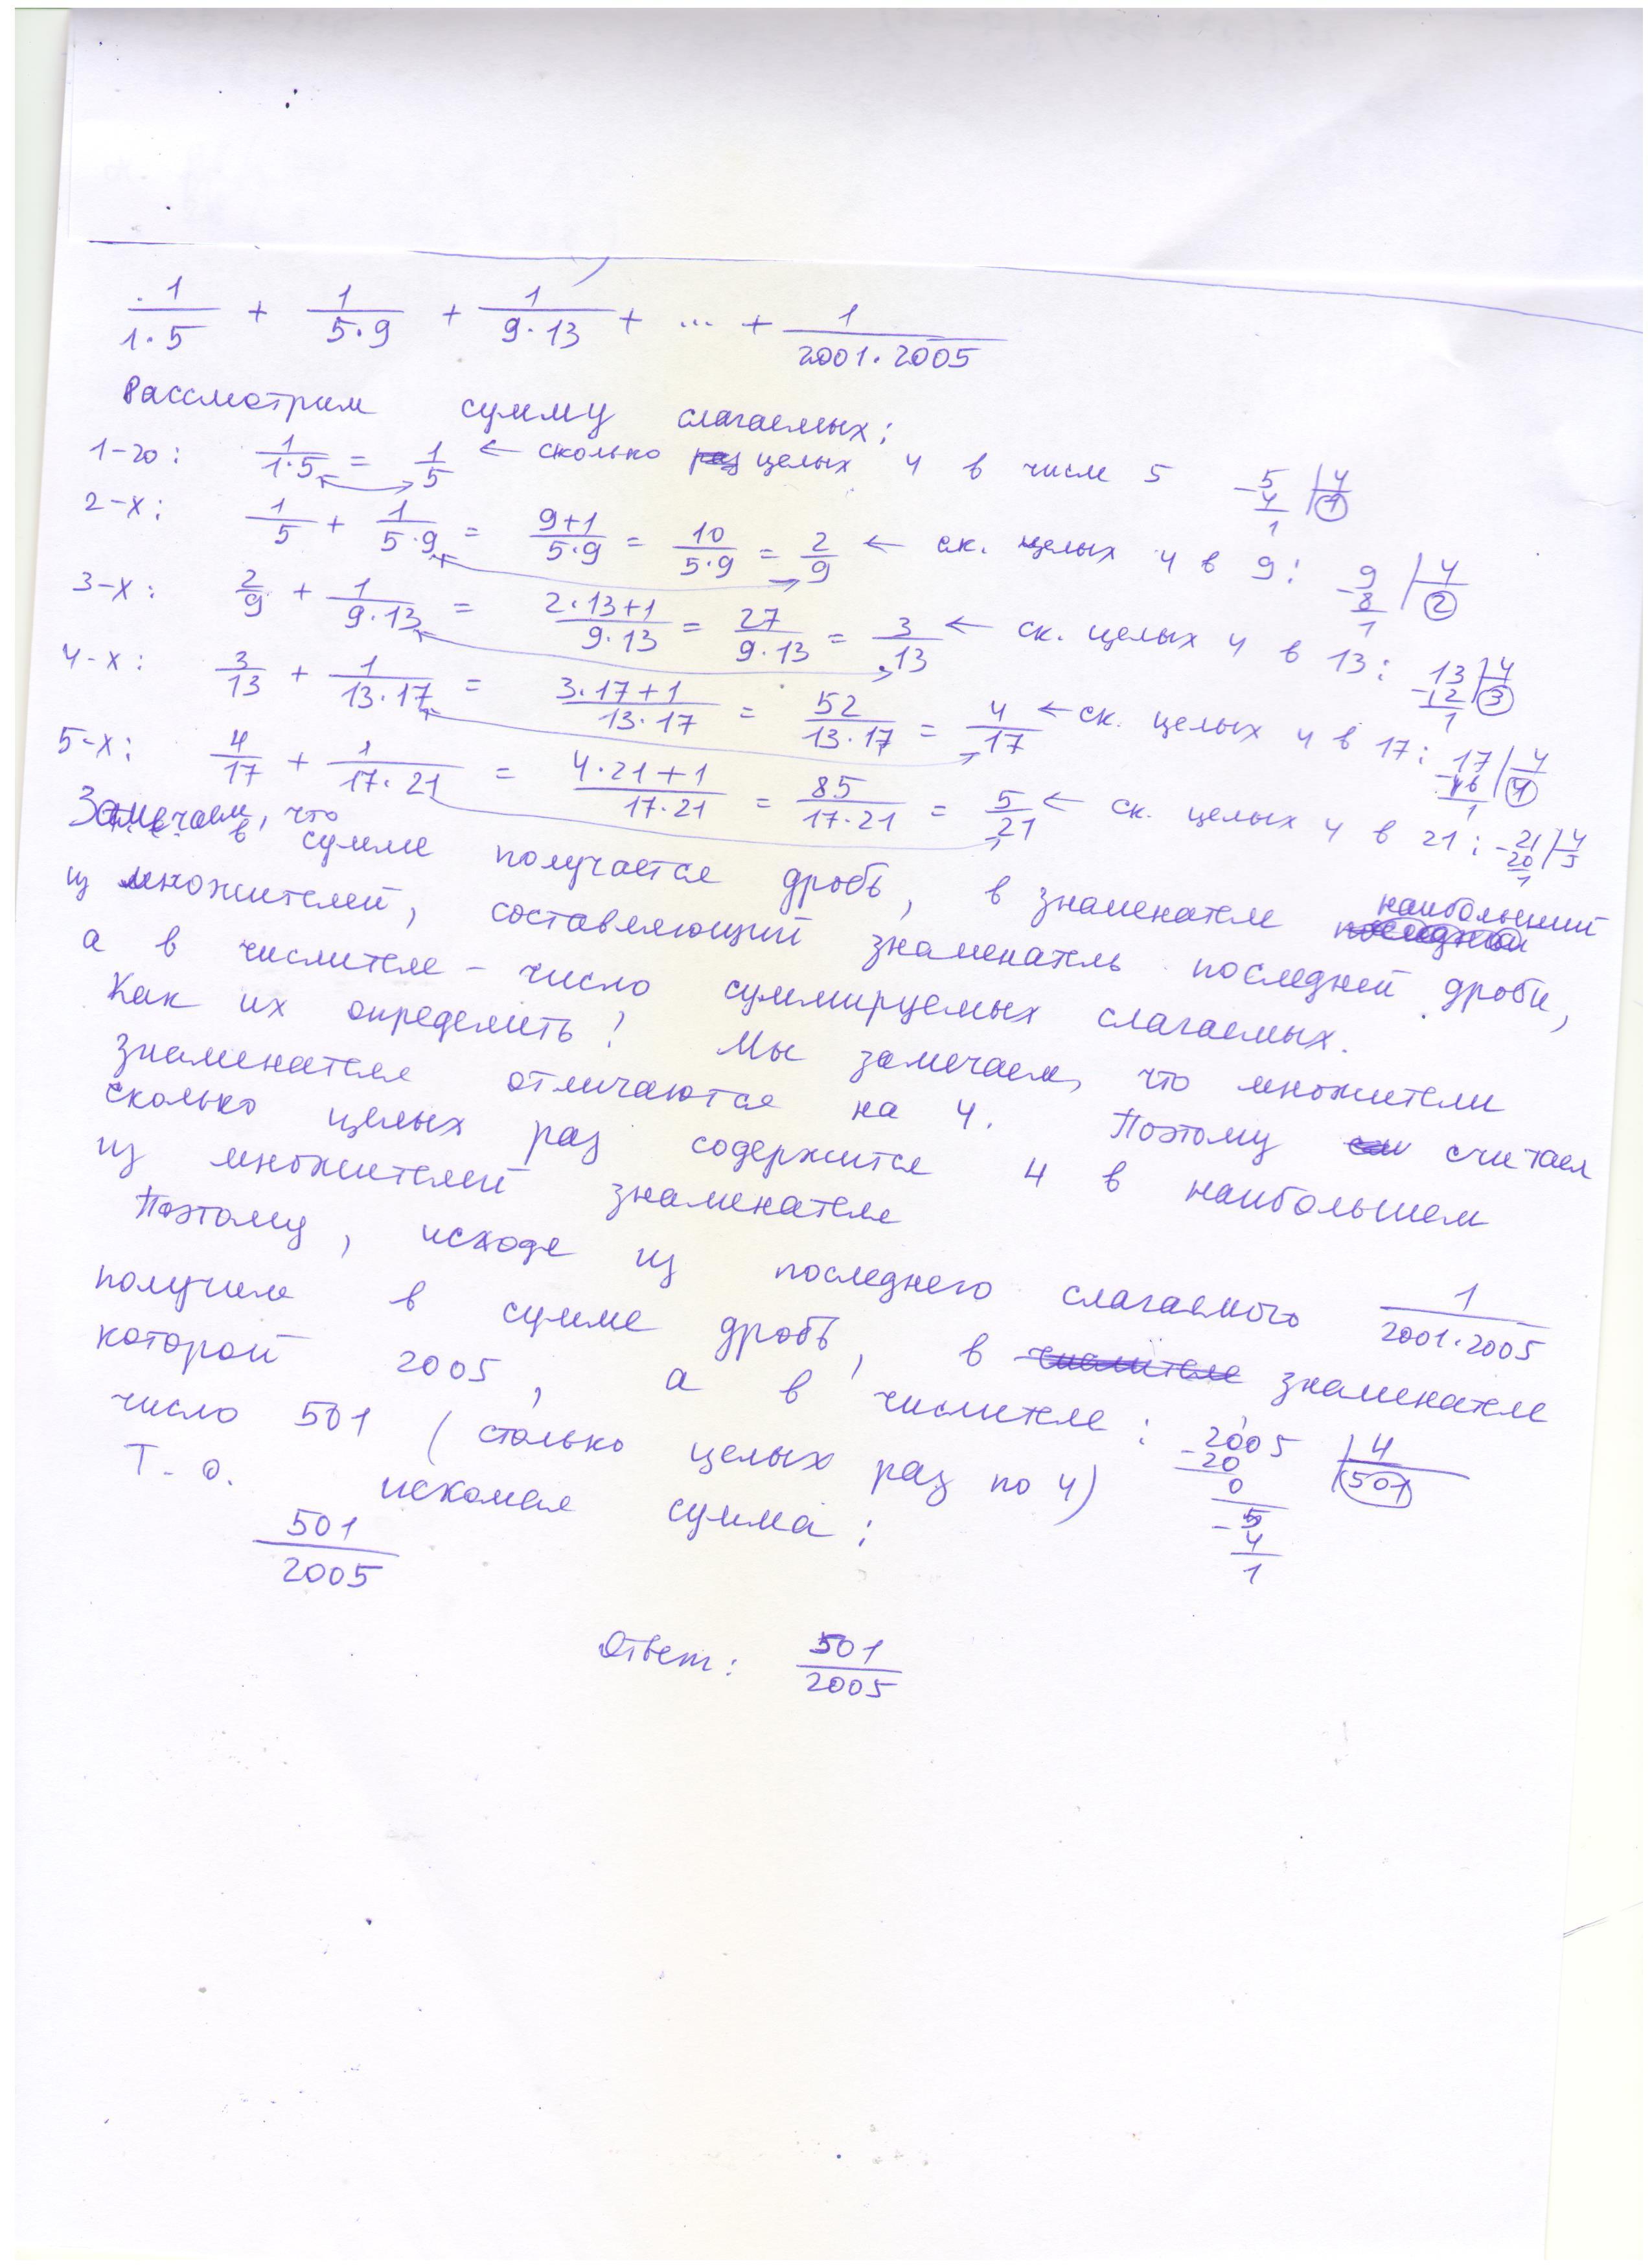 1/(1·5) + 1/(5·9) + 1/(9·13) + ... + 1/(2001·2005)
Рассмотрим сумму слагаемых:
1-го: 1/(1·5) = 1/5 ← сколько целых 4 в числе 5 5 | 4 4 1 1
2-х: 1/5 + 1/(5·9) = (9+1)/(5·9) = 10/(5·9) = 2/9 ← ск. целых 4 в 9: 9 | 4 8 2 1
3-х: 2/9 + 1/(9·13) = (2·13+1)/(9·13) = 27/(9·13) = 3/13 ← ск. целых 4 в 13: 13 | 4 12 3 1
4-х: 3/13 + 1/(13·17) = (3·17+1)/(13·17) = 52/(13·17) = 4/17 ← ск. целых 4 в 17: 17 | 4 16 4 1
5-х: 4/17 + 1/(17·21) = (4·21+1)/(17·21) = 85/(17·21) = 5/21 ← ск. целых 4 в 21: 21 | 4 20 5 1
Замечаем, что
в сумме получается дробь, в знаменателе наибольший
из множителей, составляющий знаменатель последней дроби,
а в числителе – число суммируемых слагаемых.
Как их определить? Мы замечаем, что множители
знаменателя отличаются на 4. Поэтому считаем
сколько целых раз содержится 4 в наибольшем
из множителей знаменателя
Поэтому, исходя из последнего слагаемого 1/(2001·2005)
получим в сумме дробь, в знаменателе
которой 2005, а в числителе: 2005 | 4
число 501 (столько целых раз по 4) 20 501 0 5 4 1
Т.о. искомая сумма:
501/2005
Ответ: 501/2005